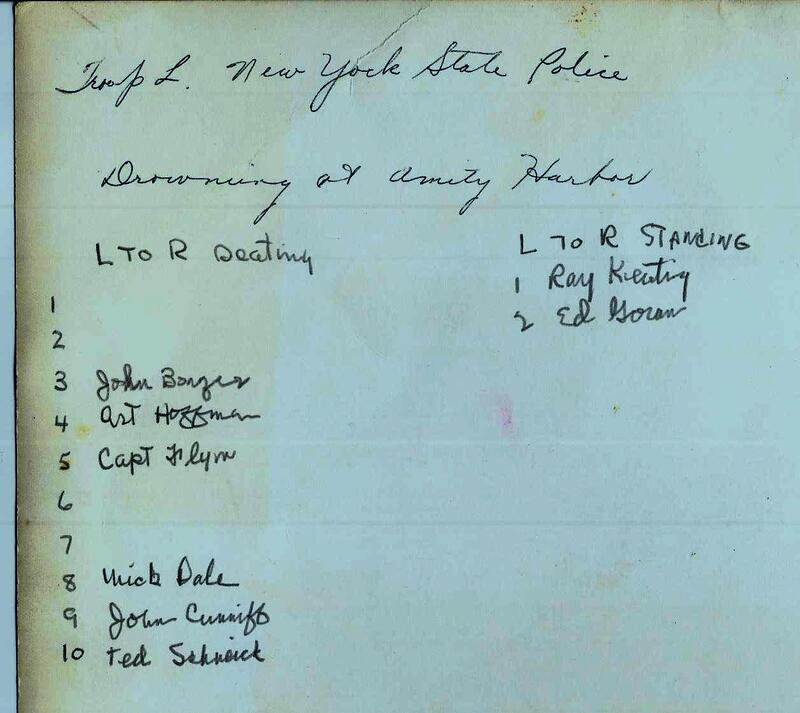 Troop L. New York State Police
Drowning at Amity Harbor
L TO R Seating
1
2
3 John
4 Art Hoffman
5 Capt Flynn
6
7
8 Mick Dale
9 John Cunniff
10 Ted
L TO R STANDING
1 Ray Keating
2 Ed Goran